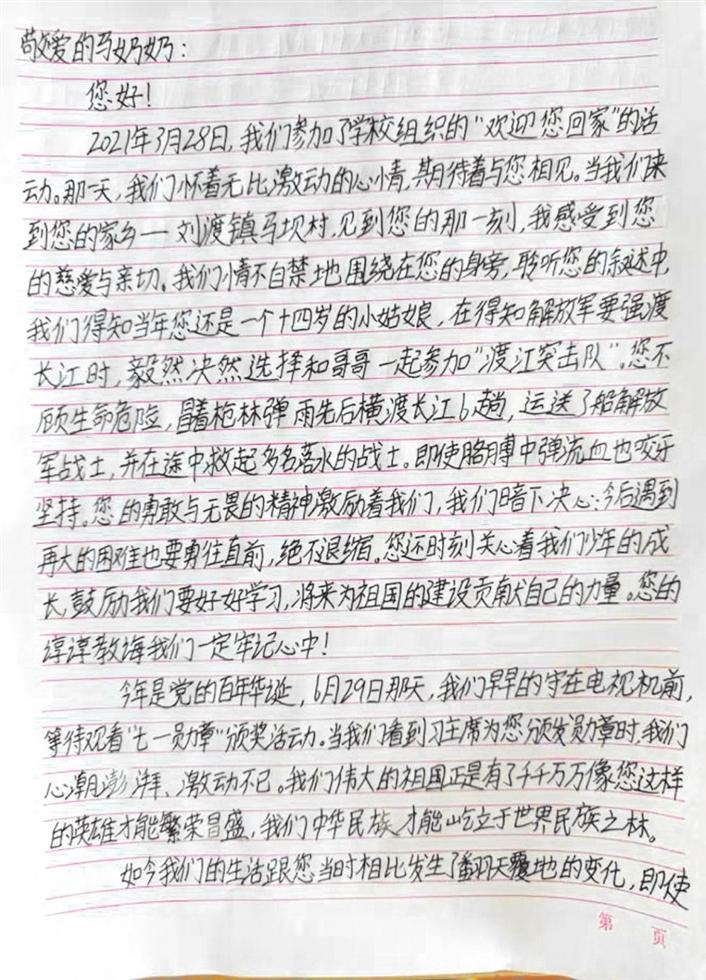 敬爱的马奶奶：
您好！
2021年3月28日，我们参加了学校组织的“欢迎您回家”的活
动。那一天，我们怀着无比激动的心情，期待着与您相见。当我们来
到您的家乡——刘渡镇马坝村，见到您的那一刻，我感受到您
的慈爱与亲切。我们情不自禁地围绕在您的身旁，聆听您的叙述中，
我们得知当年您还是一个十四岁的小姑娘，在得知解放军要强渡
长江时，毅然决然选择和哥哥一起参加“渡江突击队”。您不
顾生命危险，冒着枪林弹雨先后横渡长江6趟，运送了3船解放
军战士，并在途中救起多名落水的战士。即使胳膊中弹流血也咬牙
坚持。您的勇敢与无畏的精神激励着我们，我们暗下决心：今后遇到
再大的困难也要勇往直前，绝不退缩。您还时刻关心着我们少年的成
长，鼓励我们要好好学习，将来为祖国的建设贡献自己的力量。您的
谆谆教诲我们一定牢记心中！
今年是党的百年华诞，6月29日那天，我们早早的守在电视机前，
等待观看“七一勋章”颁奖活动。当我们看到习主席为您颁发勋章时，我们
心潮澎湃、激动不已。我们伟大的祖国正是有了千千万万像您这样
的英雄才能繁荣昌盛，我们中华民族才能屹立于世界民族之林。
如今我们的生活跟您当时相比发生了翻天覆地的变化，即使
第 页